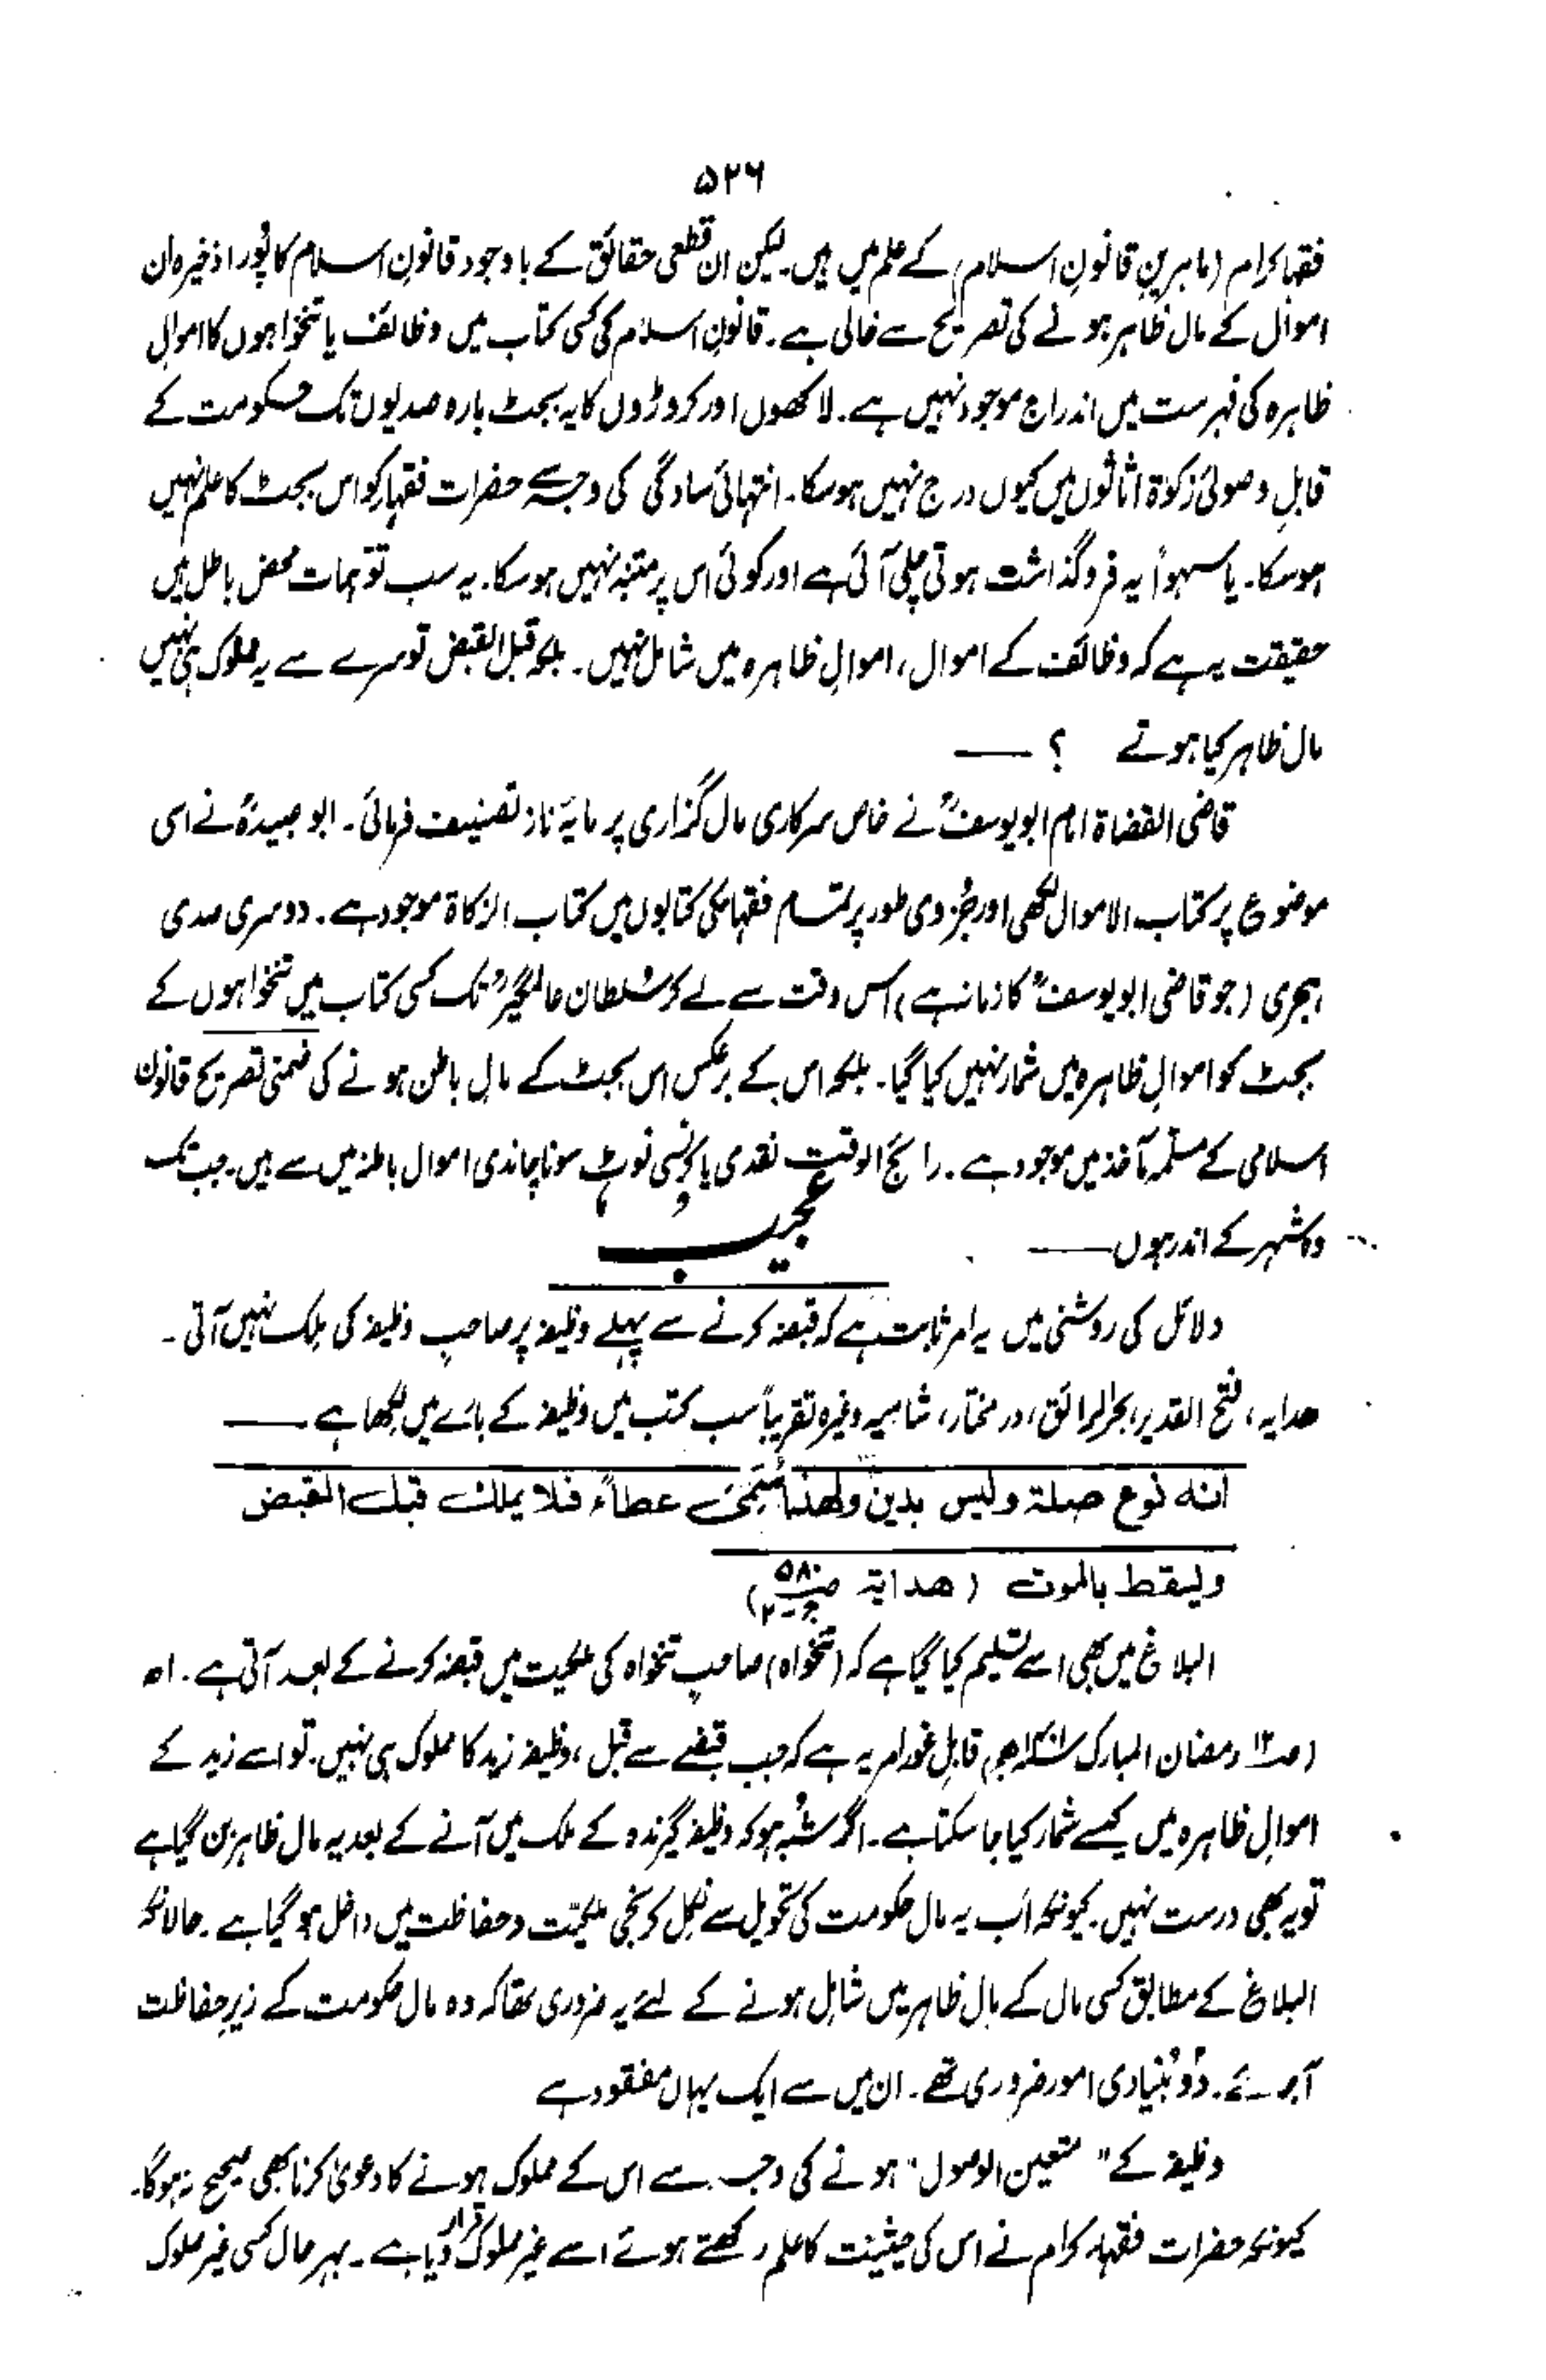 ۵۲۶
فقہا کرام (ماہرینِ قانونِ اسلام) کے علم میں ہیں۔ لیکن ان قطعی حقائق کے باوجود قانونِ اسلام کا پُورا ذخیرہ ان
اموال کے مال ظاہر ہونے کی تصریح سے خالی ہے۔ قانونِ اسلام کی کسی کتاب میں وظائف یا تنخواہوں کا اموالِ
ظاہرہ کی فہرست میں اندراج موجود نہیں ہے۔ لاکھوں اور کروڑوں کا یہ بجٹ بارہ صدیوں تک حکومت کے
قابلِ وصولیٔ زکوٰۃ اثاثوں میں کیوں درج نہیں ہوسکا۔ انتہائی سادگی کی وجہ سے حضرات فقہاء کو اس بجٹ کا علم نہیں
ہوسکا۔ یا سہواً یہ فروگذاشت ہوتی چلی آئی ہے اور کوئی اس پر متنبہ نہیں ہوسکا۔ یہ سب توہمات محض باطل ہیں
حقیقت یہ ہے کہ وظائف کے اموال، اموالِ ظاہرہ میں شامل نہیں۔ بلکہ قبل القبض تو سرے سے یہ مملوک ہی نہیں
مال ظاہر کیا ہوتے ؟ ——
قاضی القضاۃ امام ابویوسفؒ نے خاص سرکاری مال گزاری پر مایۂ ناز تصنیف فرمائی۔ ابو عبیدہؒ نے اسی
موضوع پر کتاب الاموال لکھی اور جُزوی طور پر تمام فقہاء کی کتابوں میں کتاب الزکاۃ موجود ہے۔ دوسری صدی
ہجری (جو قاضی ابویوسفؒ کا زمانہ ہے) اس وقت سے لے کر سُلطان عالمگیرؒ تک کسی کتاب میں تنخواہوں کے
بجٹ کو اموالِ ظاہرہ میں شمار نہیں کیا گیا۔ بلکہ اس کے برعکس اس بجٹ کے مالِ باطن ہونے کی ضمنی تصریح قانون
اسلامی کے مسلّمہ مآخذ میں موجود ہے۔ رائج الوقت نقدی یا کرنسی نوٹ سونا چاندی اموال باطنہ میں سے ہیں۔ جب تک
وہ شہر کے اندر ہوں ——
عجیب
دلائل کی روشنی میں یہ امر ثابت ہے کہ قبضہ کرنے سے پہلے وظیفہ پر صاحبِ وظیفہ کی مِلک نہیں آتی۔
ھدایہ، فتح القدیر، بحر الرائق، در مختار، شامیہ وغیرہ تقریباً سب کتب میں وظیفہ کے بارے میں لکھا ہے ——
انه نوع صلة وليس بدين ولهذا سُمّي عطاءً فلا يملك قبل القبض
ويسقط بالموت (هداية ص۵۸۰ ج۲)
البلاغ میں بھی اسے تسلیم کیا گیا ہے کہ (تنخواہ) صاحبِ تنخواہ کی ملکیت میں قبضہ کرنے کے بعد آتی ہے۔ اھ
(ص۱۲ رمضان المبارک ۱۴۰۱ھ) قابلِ غور امر یہ ہے کہ جب قبضے سے قبل، وظیفہ زید کا مملوک ہی نہیں۔ تو اسے زید کے
اموالِ ظاہرہ میں کیسے شمار کیا جا سکتا ہے۔ اگر شُبہ ہو کہ وظیفہ گیرندہ کے ملک میں آنے کے بعد یہ مال ظاہر بن گیا ہے
تو یہ بھی درست نہیں۔ کیونکہ اَب یہ مال حکومت کی تحویل سے نکل کر نجی ملکیّت و حفاظت میں داخل ہوگیا ہے۔ حالانکہ
البلاغ کے مطابق کسی مال کے مالِ ظاہر میں شامل ہونے کے لئے یہ ضروری تھا کہ وہ مال حکومت کے زیرِ حفاظت
آجائے۔ دُو بُنیادی امور ضروری تھے۔ ان میں سے ایک یہاں مفقود ہے
وظیفہ کے "متعین الوصول" ہونے کی وجہ سے اس کے مملوک ہونے کا دعویٰ کرنا بھی صحیح نہ ہوگا۔
کیونکہ حضرات فقہاء کرام نے اس کی حیثیت کا علم رکھتے ہوئے اسے غیر مملوک قرار دیا ہے۔ بہر حال کسی غیر مملوک